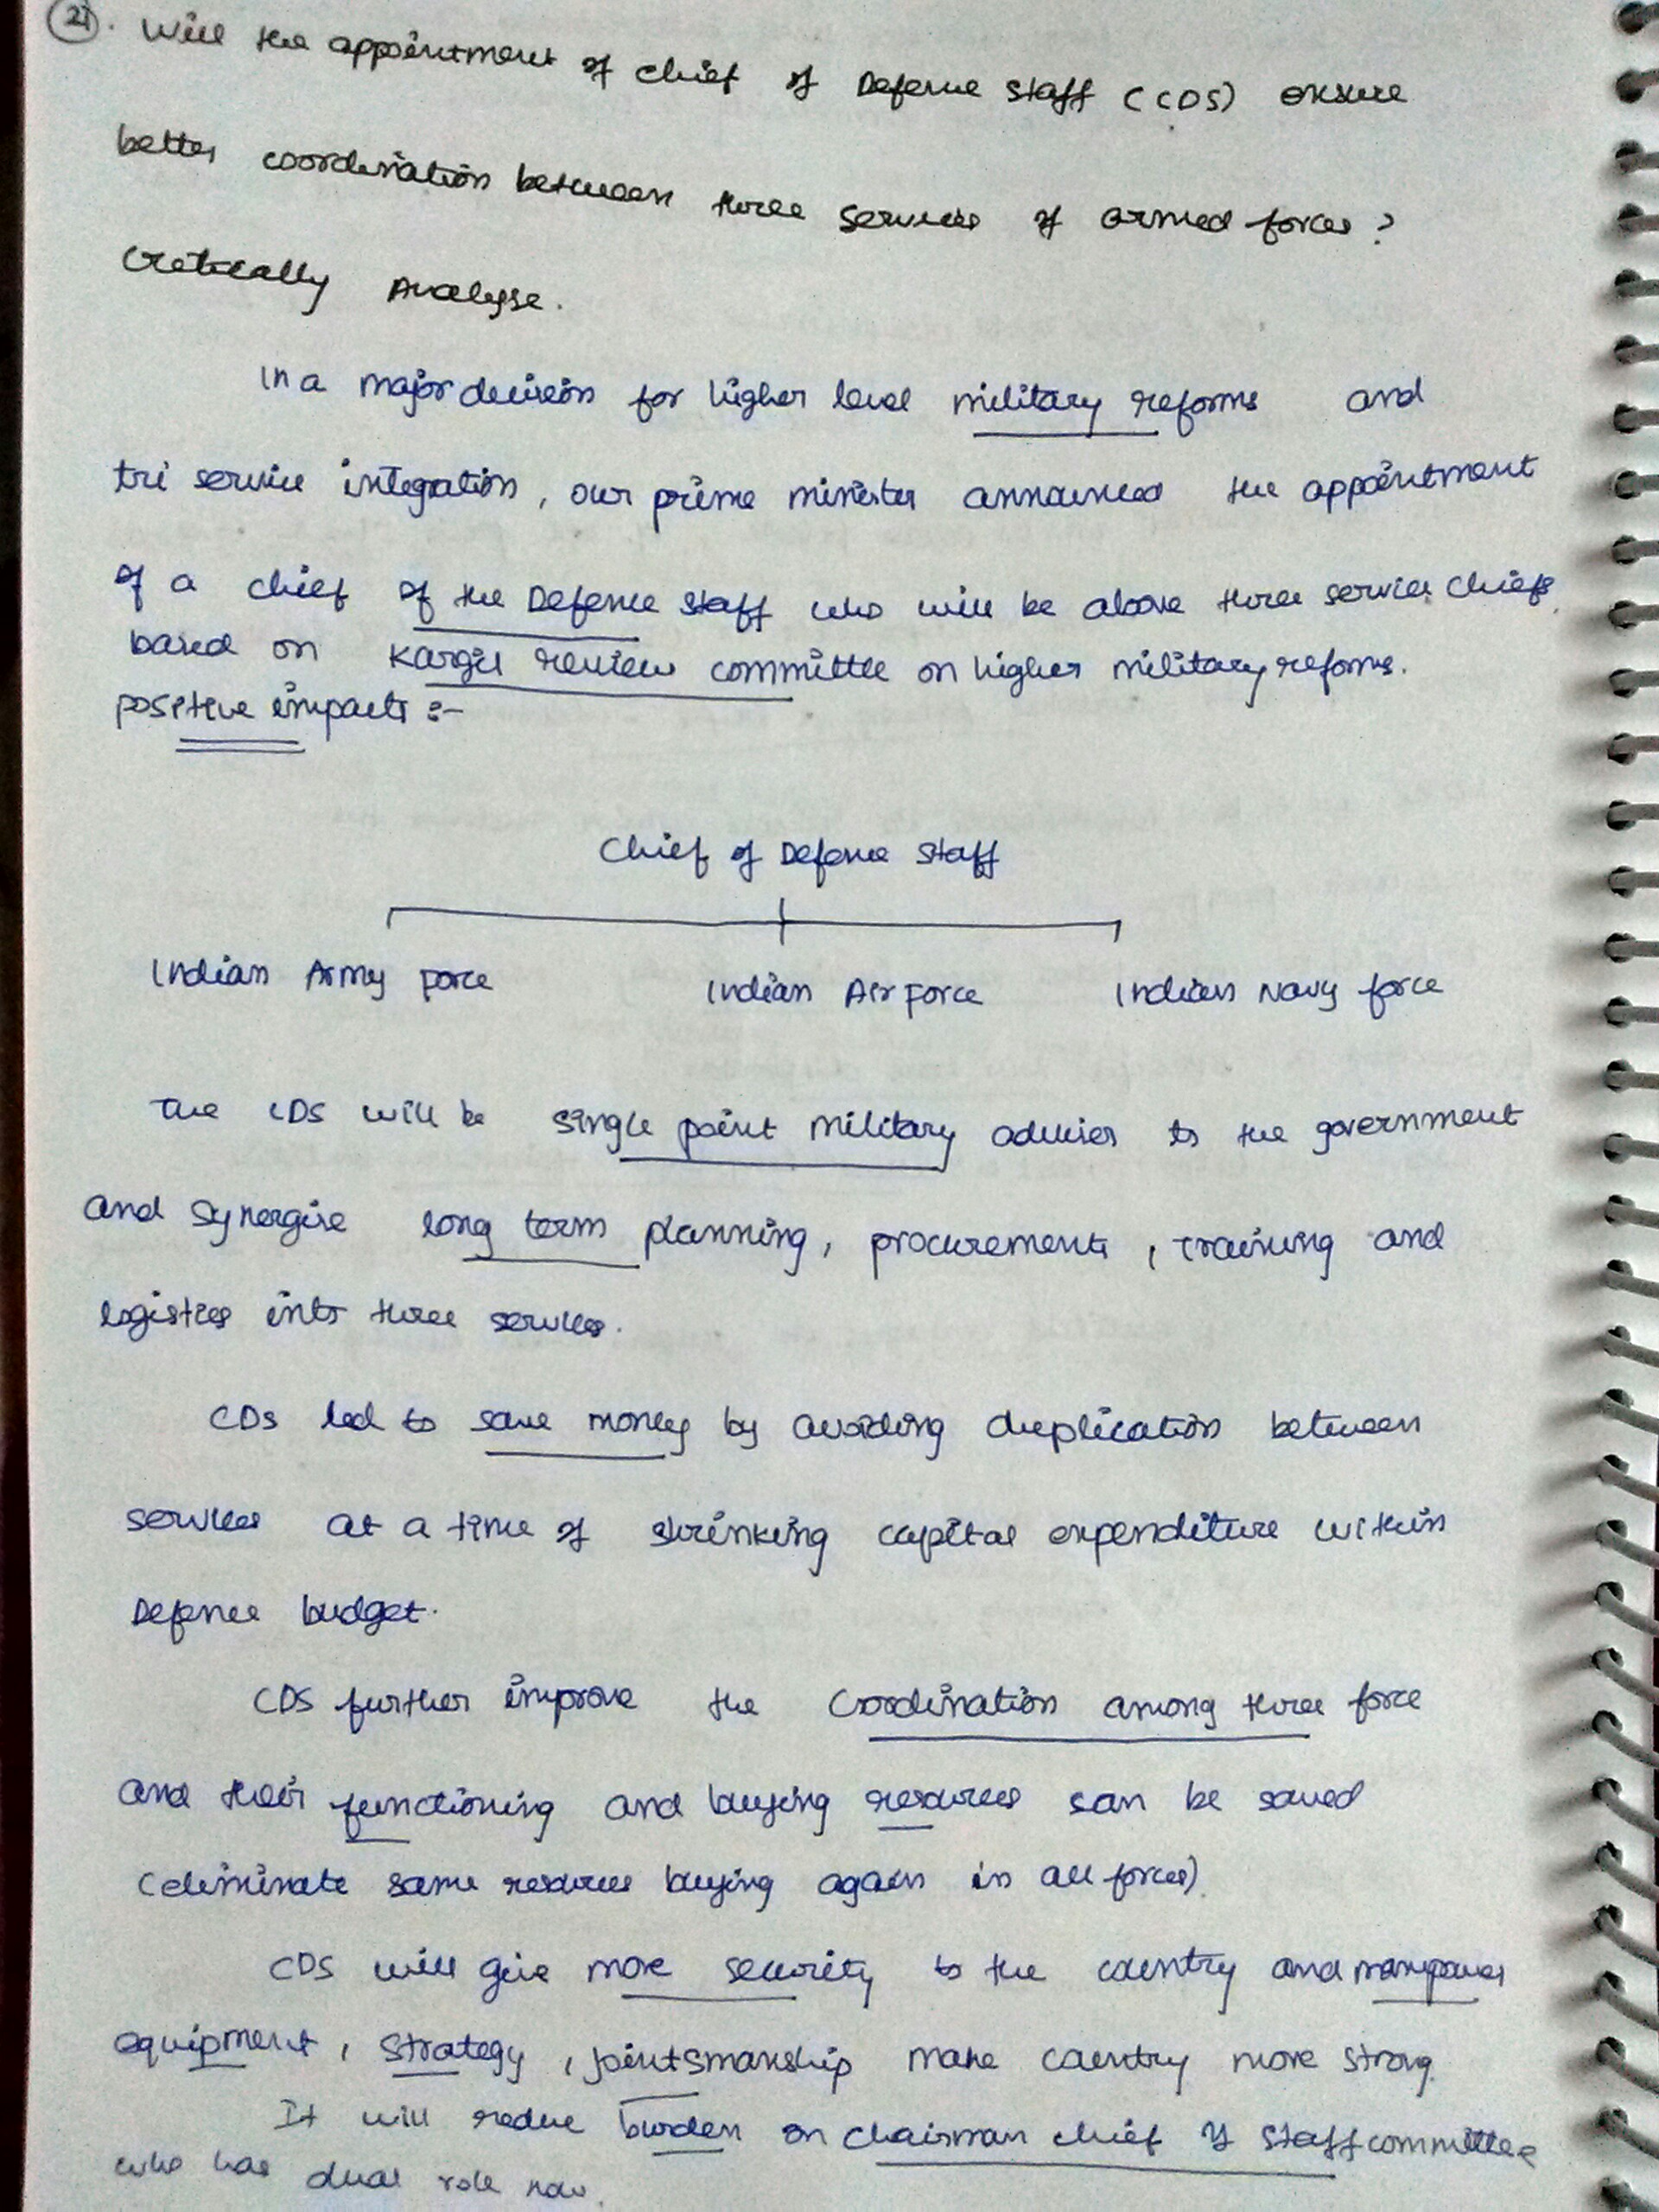 21. Will the appointment of Chief of Defense Staff (CDS) ensure
better coordination between three services of armed forces?
Critically Analyse.
In a major decision for higher level military reforms and
tri service integration, our prime minister announced the appointment
of a chief of the Defence Staff who will be above three service chiefs
based on Kargil review committee on higher military reforms.
positive impacts :-
Chief of Defense Staff
Indian Army Force
Indian Air Force
Indian Navy force
The CDS will be single point military advisor to the government
and synergise long term planning, procurements, training and
logistics into three services.
CDS led to save money by avoiding duplication between
services at a time of shrinking capital expenditure within
Defence budget.
CDS further improve the coordination among three force
and their functioning and buying resources can be saved
(eliminate same resources buying again in all forces).
CDS will give more security to the country and manpower
equipment, strategy, jointsmanship make country more strong.
It will reduce burden on chairman chief of staff committee
who has dual role now.